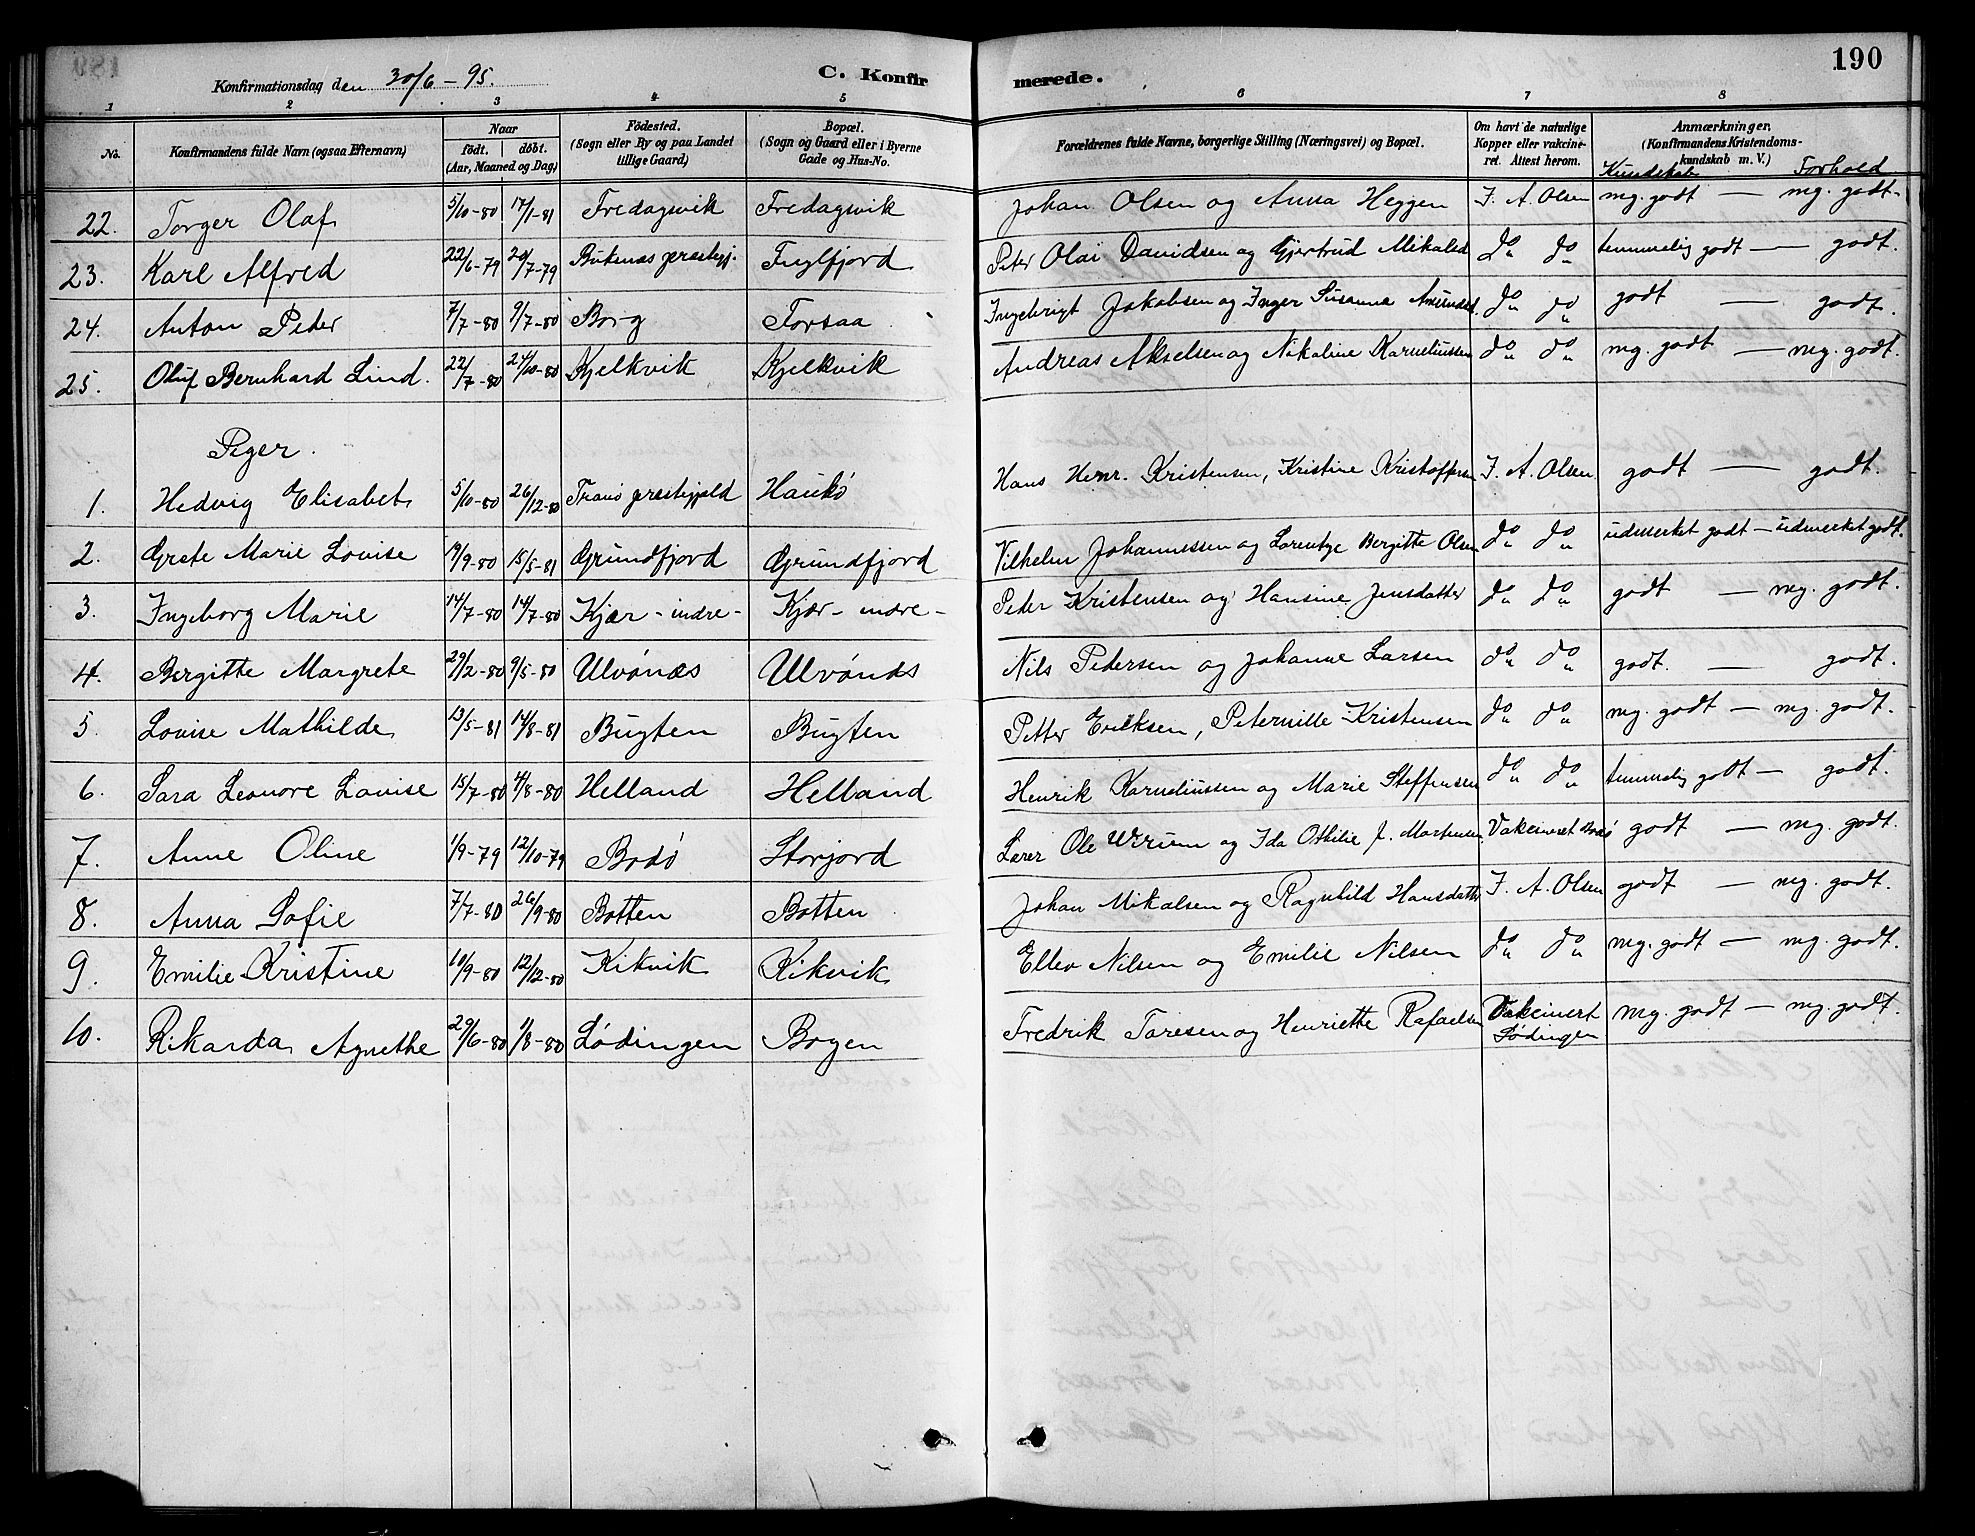 190
Konfirmationsdag den 30/6 - 95.
C. Konfirmerede.
1 2 3 4 5 6 7 8
No. Konfirmandens fulde Navn (ogsaa Efternavn) Naar födt. döbt. (Aar, Maaned og Dag) Födested. (Sogn eller By og paa Landet tillige Gaard) Bopæl. (Sogn og Gaard eller i Byerne Gade og Hus-No. Forældrenes fulde Navne, borgerlige Stilling (Næringsvei) og Bopæl. Om havt de naturlige Kopper eller vakcineret. Attest herom. Anmærkninger. (Konfirmandens Kristendomskundskab m. V.) Kundskab Forhold
22. Torger Olaf 5/10-80 17/1-81 Fredagsvik Fredagsvik Johan Olsen og Anna Heggen J. A. Olsen mg. godt — mg. godt.
23. Karl Alfred 22/6-79 20/7-79 Buknæs præstegj. Inglfjord Peter Olai Davidsen og Gjertrud Mikalsd do do temmelig godt — godt.
24. Anton Peder 7/7-80 9/7-80 Borg Forsaa Ingebrigt Jakobsen og Inger Susanna Amundsd. do do godt — godt.
25. Oluf Bernhard Lind. 22/7-80 24/10-80 Kjelkvik Kjelkvik Andreas Akselsen og Nikoline Korneliussen do do mg. godt — mg. godt.
Piger.
1. Hedvig Elisabet 5/10-80 26/12-80 Tranö præstegjæld Haukö Hans Henr. Kristensen, Kristine Kristoffersen J. A. Olsen. godt — godt.
2. Grete Marie Lovise 19/9-80 15/5-81 Grundfjord Grundfjord Vilhelm Johannessen og Lorentze Bergitte Olsen do do udmerket godt — udmerket godt.
3. Ingeborg Marie 14/7-80 14/7-80 Kjær - indre - Kjær - indre - Peder Kristensen og Hansine Jensdatter do do godt — mg. godt.
4. Bergitte Margrete 29/2-80 9/5-80 Ulvönæs Ulvönæs Nils Pedersen og Johanne Larsen do do godt. — godt.
5. Lovise Mathilde 13/5-81 14/8-81 Bugten Bugten Petter Eriksen, Peternille Kristensen do do mg. godt — mg. godt.
6. Sara Leonore Lovise 15/7-80 4/8-80 Helland Helland Henrik Korneliussen og Marie Steffensen do do temmelig godt — godt.
7. Anne Oline 1/9-79 12/10-79 Bodö Storjord Lærer Ole og Ida Othilie J. Mortensen. Vakcineret Bodö godt — mg. godt.
8. Anna Sofie 7/7-80 26/9-80 Botten Botten Johan Mikalsen og Ragnhild Hansdatter J. A. Olsen godt — mg. godt.
9. Emilie Kristine 10/9-80 12/12-80 Kikvik Kikvik Ellev Nilsen og Emilie Nilsen do do mg. godt — mg. godt.
10. Rikarda Agnethe 29/6-80 1/8-80 Lödingen Bogen Fredrik Toresen og Henriette Rafaelsen Vakcinert Lödingen mg. godt — mg. godt.